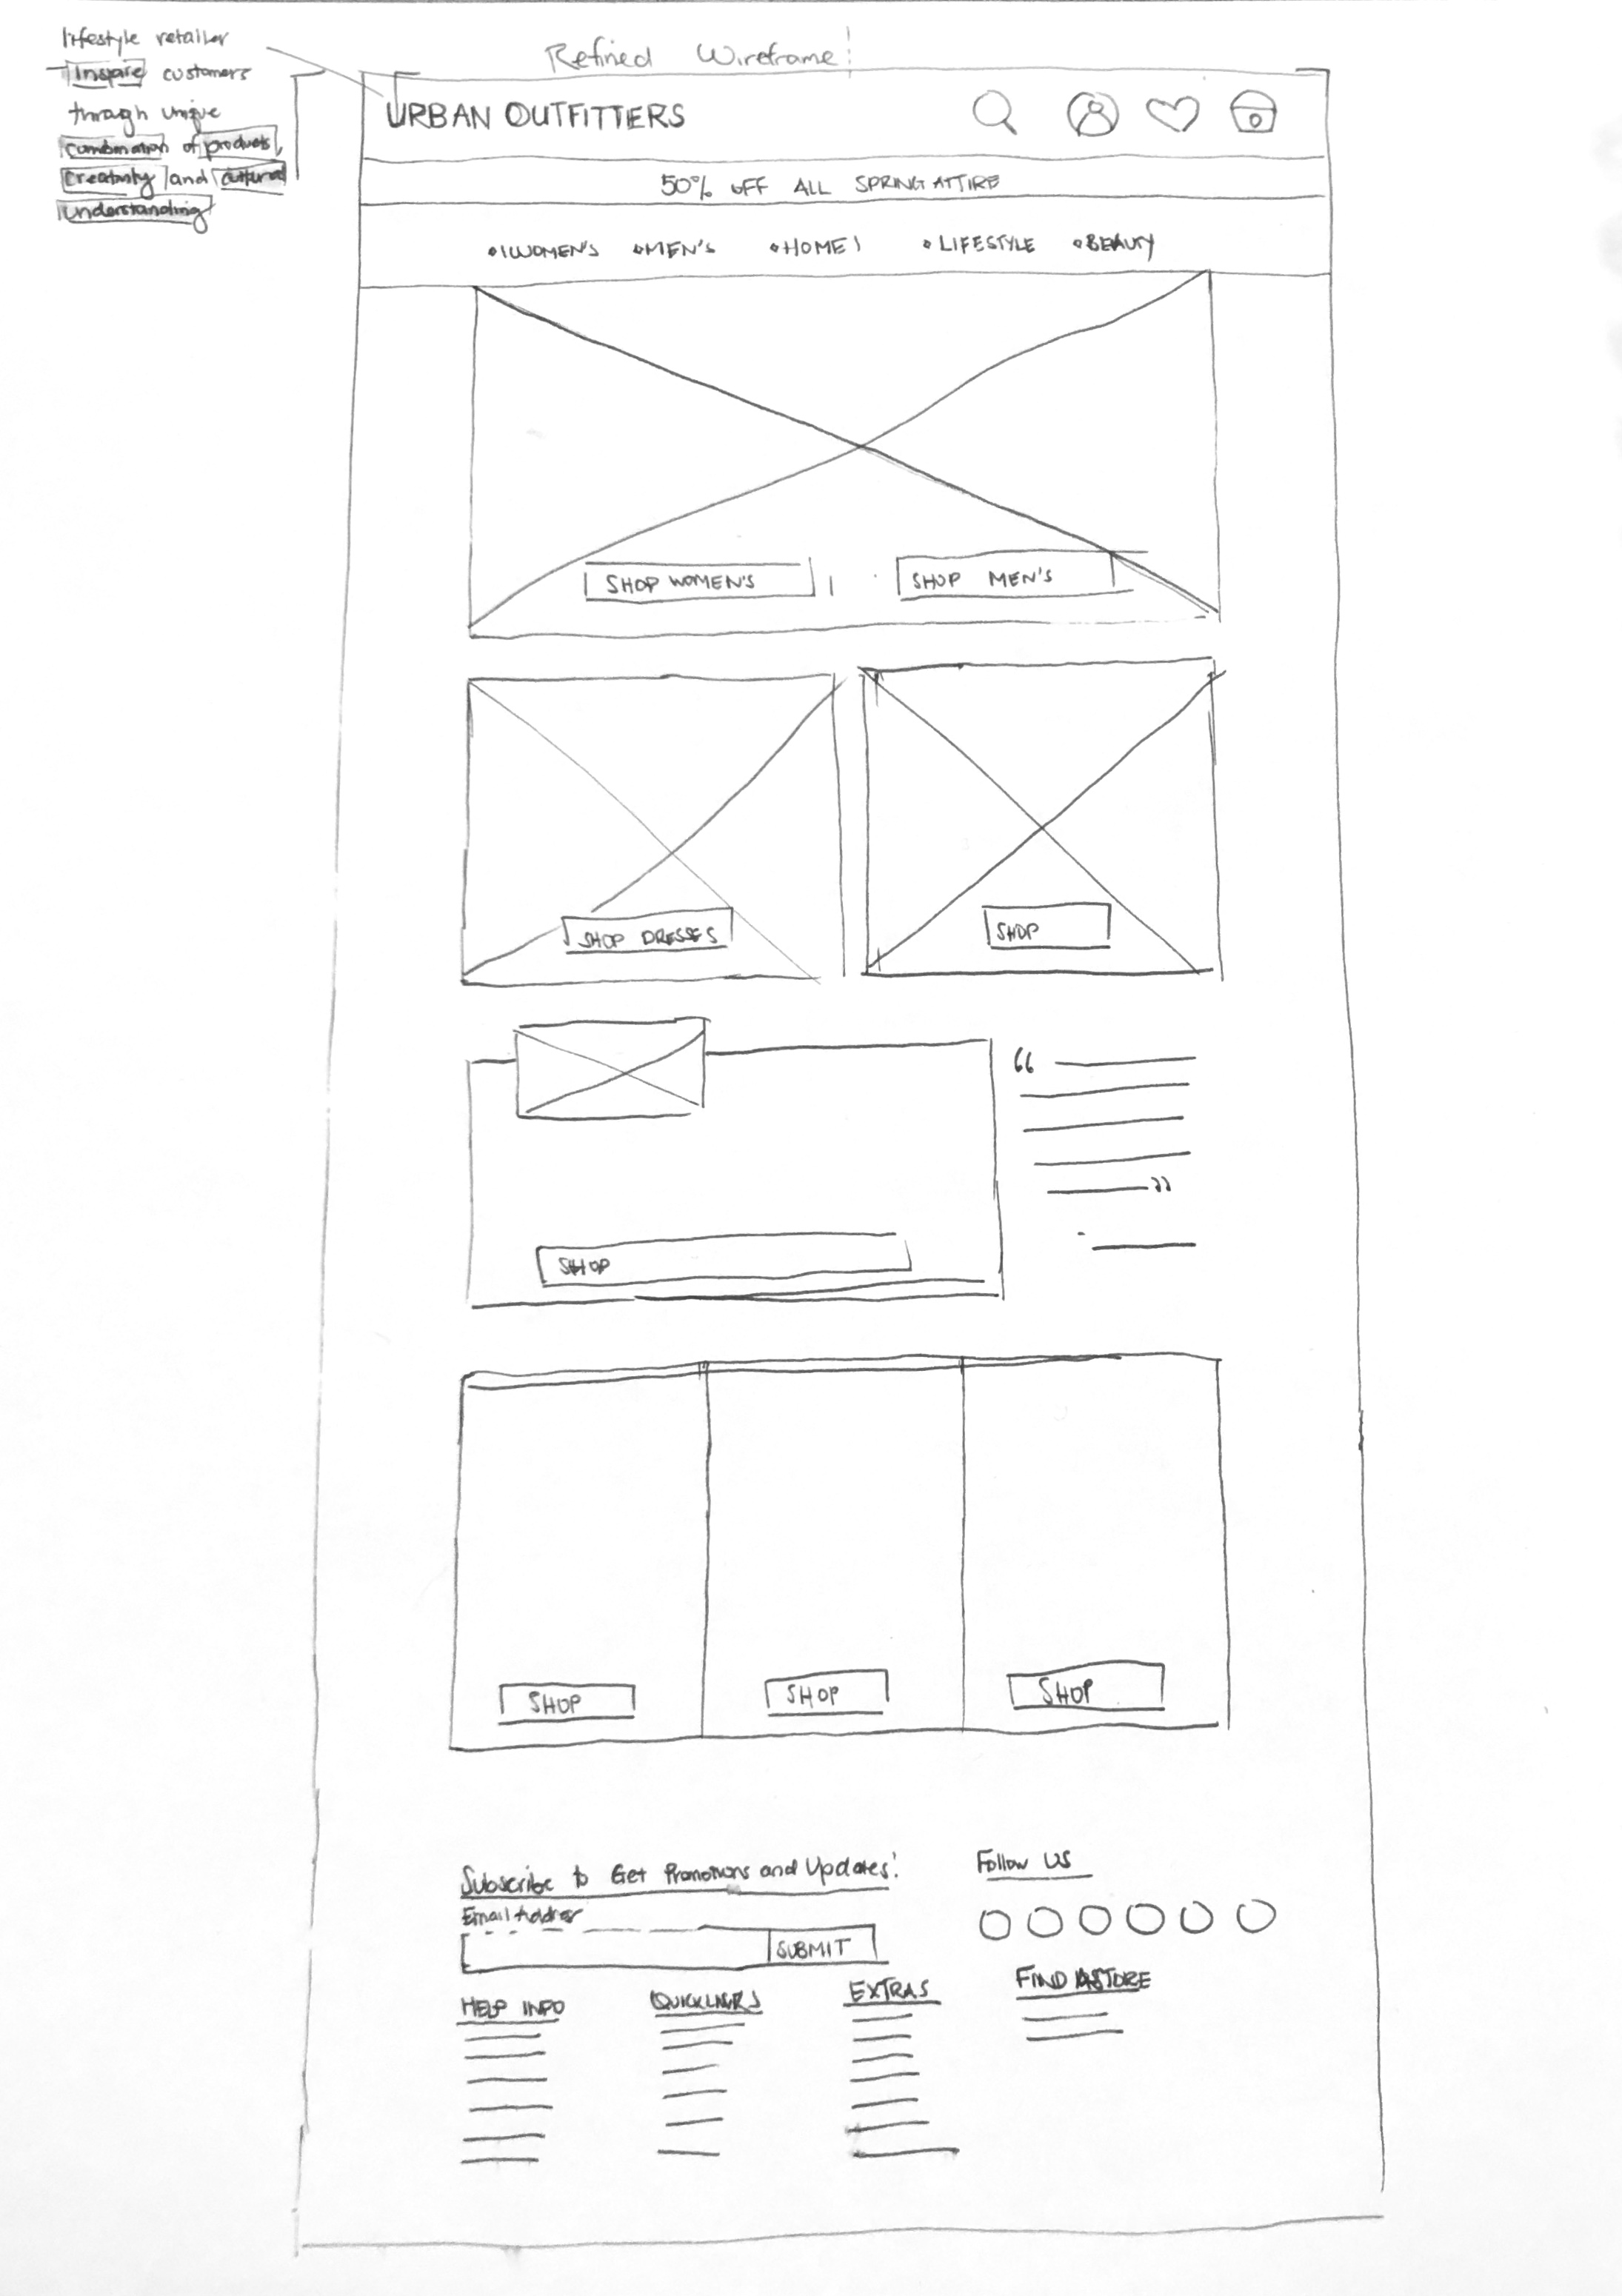 lifestyle retailer
Inspire customers
through unique
combination of products,
creativity and cultural
understanding
Refined Wireframe!
URBAN OUTFITTERS
50% OFF ALL SPRING ATTIRE
WOMEN'S MEN'S HOME LIFESTYLE BEAUTY
SHOP WOMEN'S SHOP MEN'S
SHOP DRESSES SHOP
“
”
SHOP
SHOP SHOP SHOP
Subscribe to Get Promotions and Updates!
Follow us
Email Address
SUBMIT
HELP INFO QUICKLINKS EXTRAS FIND A STORE